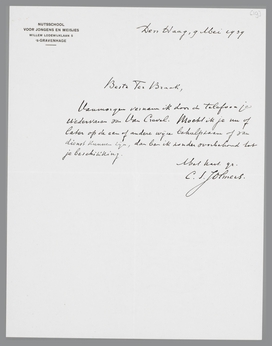 NUTSSCHOOL
VOOR JONGENS EN MEISJES
WILLEM LODEWIJKLAAN 2
'S-GRAVENHAGE
Den Haag, 9 Mei 1939
Beste Ter Braak,
Vanmorgen vernam ik door de telefoon je
wedervaren van Van Crevel. Mocht ik je nu of
later op de een of andere wijze behulpzaam of van
dienst kunnen zijn, dan ben ik zonder voorbehoud tot
je beschikking
Met hart. gr.